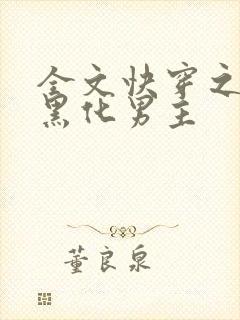 全文快穿之
黑化男主
董良泉